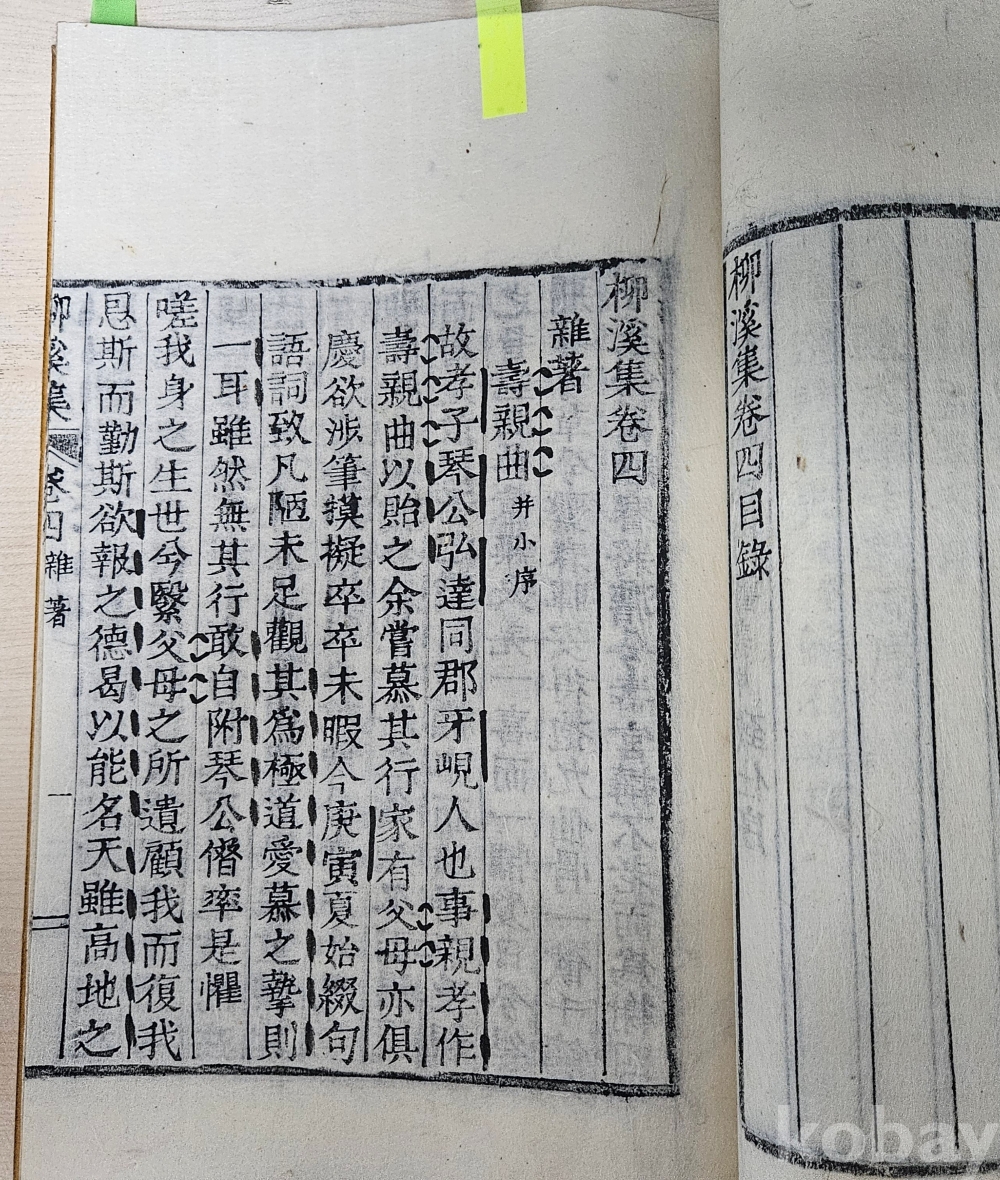 柳溪集卷四目錄
柳溪集卷四
雜著
壽親曲并小序
故孝子琴公弘達同郡牙峴人也事親孝作
壽親曲以貽之余嘗慕其行家有父母亦俱
慶欲涉筆摸擬卒卒未暇今庚寅夏始綴句
語詞致凡陋未足觀其爲極道愛慕之摯則
一耳雖然無其行敢自附琴公僭率是懼
嗟我身之生世兮繄父母之所遺顧我而復我
恩斯而勤斯欲報之德曷以能名天雖高地之
柳溪集 卷四 雜著 一
kobay